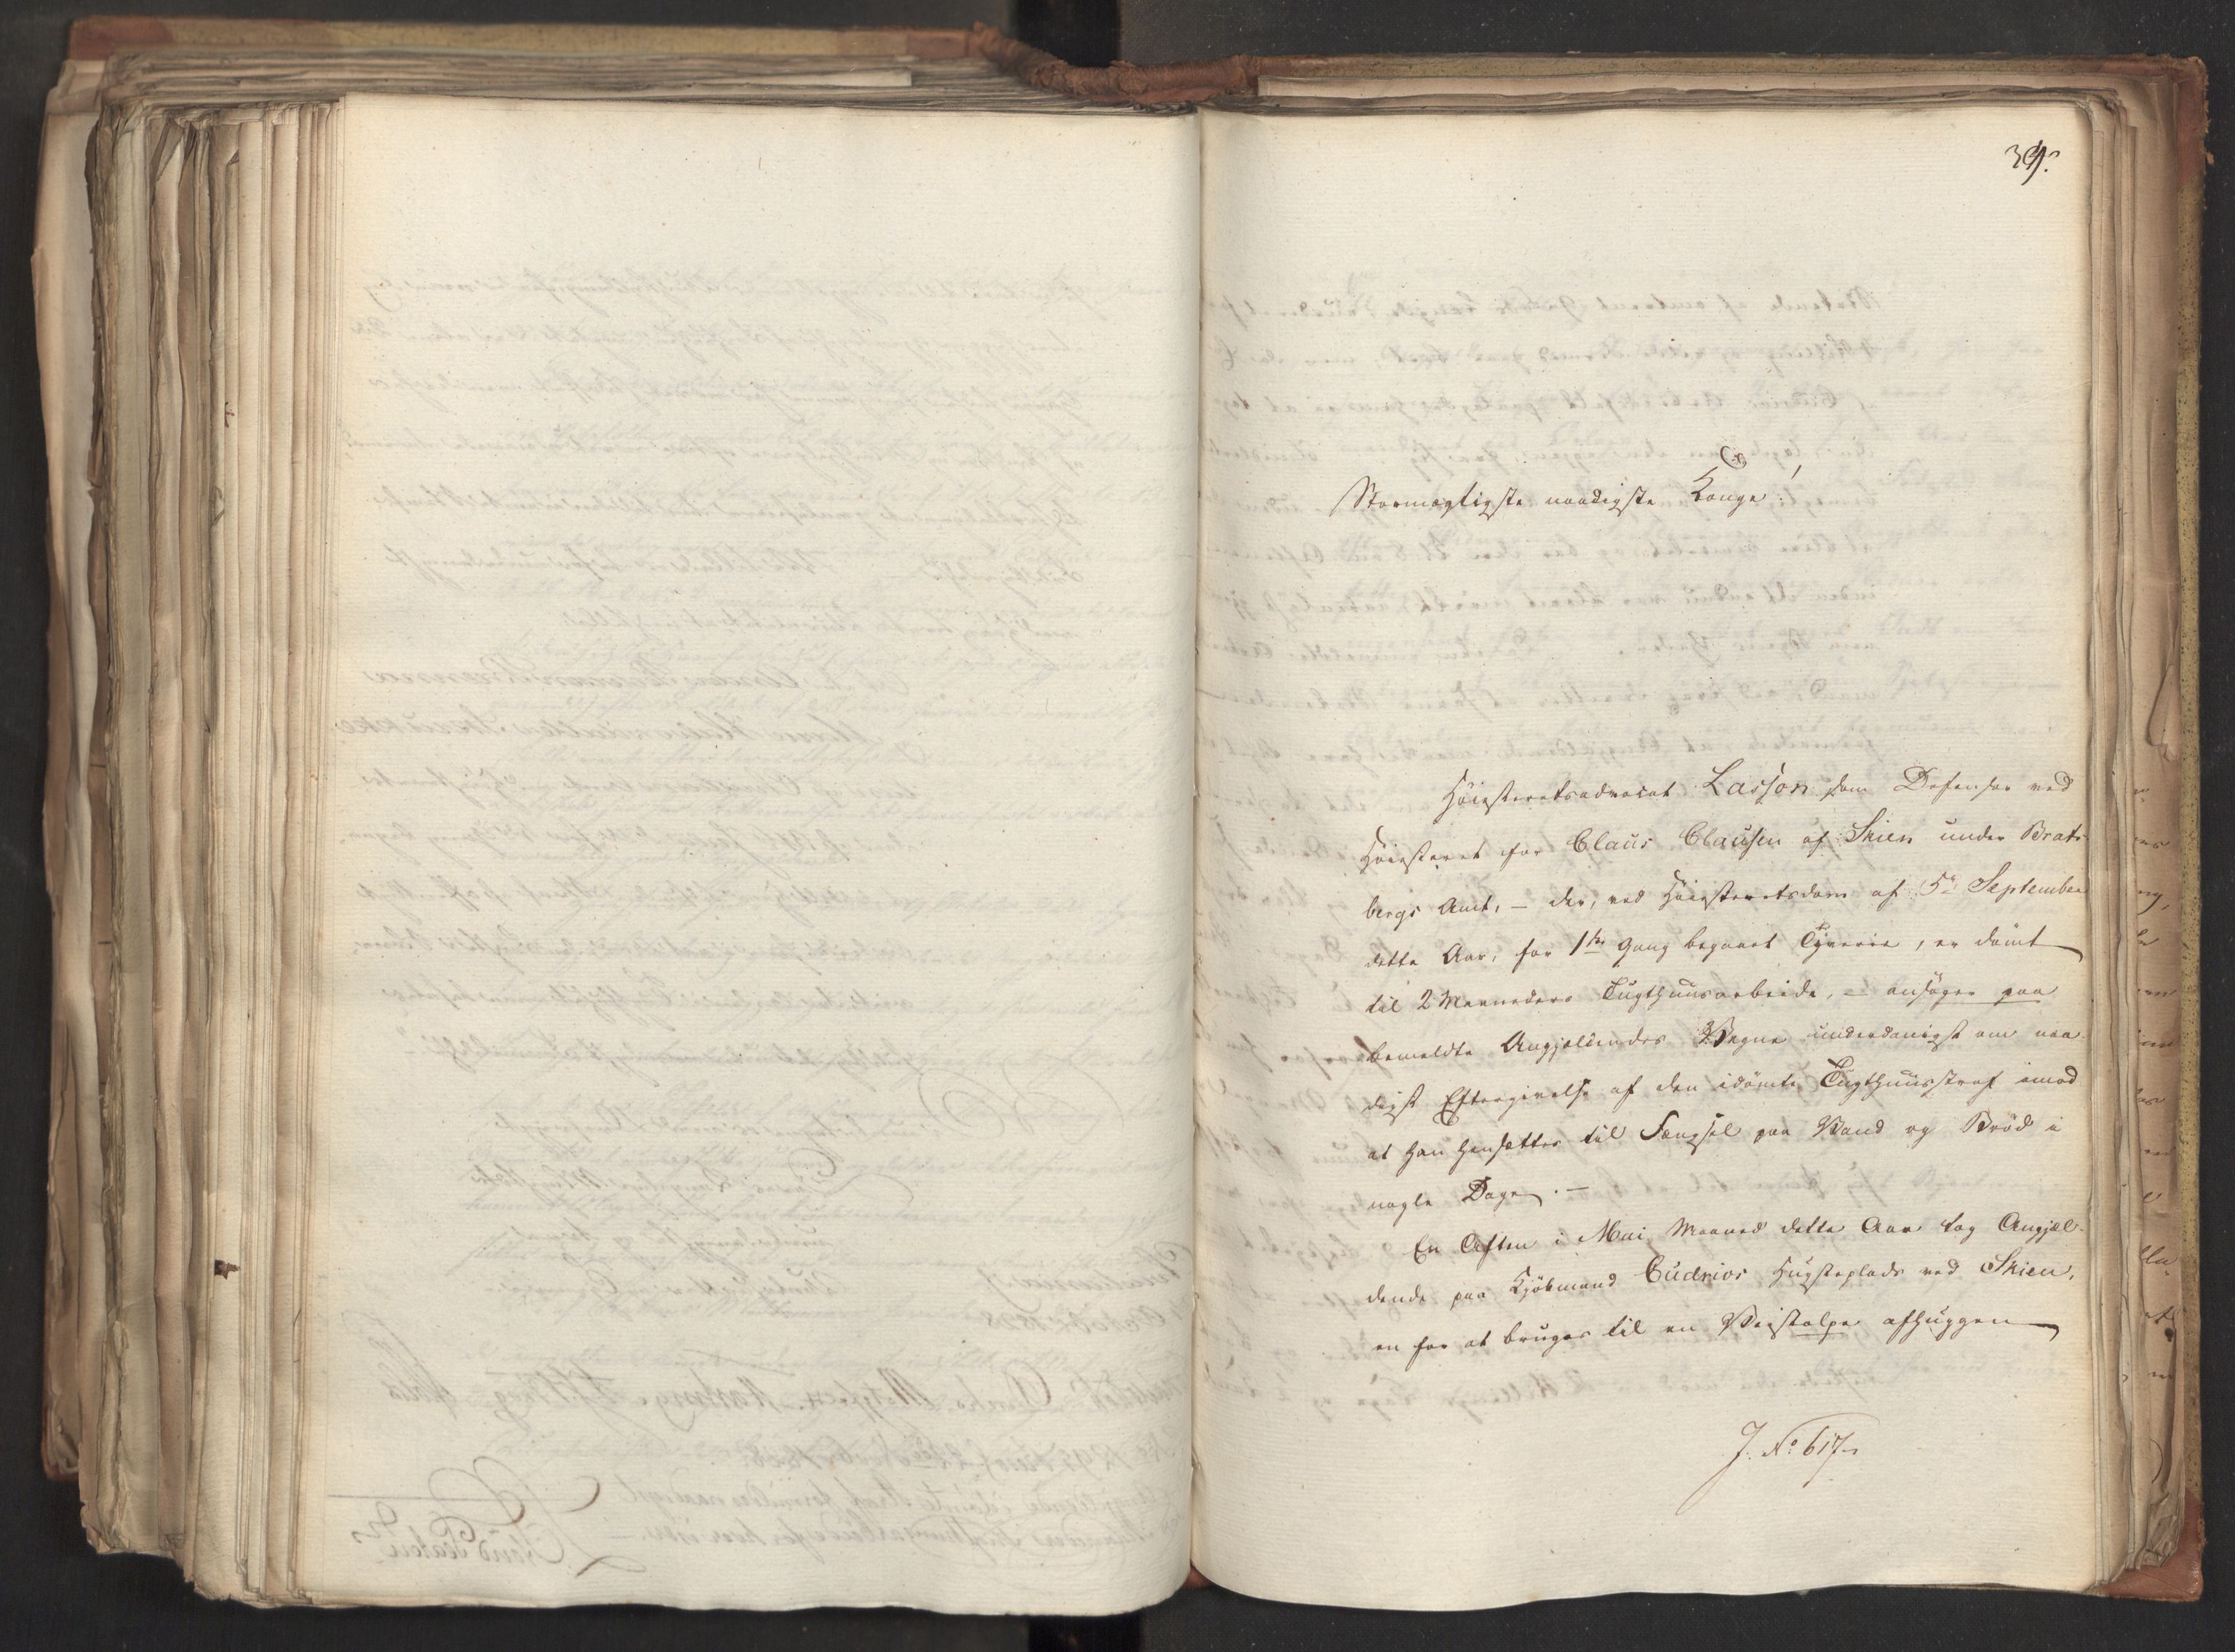 Stormægtigste naadigste Konge!
Höiesteretsadvocat Lasson som Defensor ved
Höiesteret for Claus Clausen af Skien under Brats-
bergs Amt, – der, ved Höiesteretsdom af 5te September
dette Aar, for 1ste Gang begaaet Tyverie, er dömt
til 2 Maaneders Tugthuusarbeide, – ansöger paa
bemeldte Angjældendes Vegne underdanigst om naa-
digst Eftergivelse af den idömte Tugthuusstraf imod
at han hensættes til Fængsel paa Vand og Bröd i
nogle Dage. –
En Aften i Mai Maaned dette Aar tog Angjæl-
dende paa Kjöbmand Cudrios Hugsteplads ved Skien,
en for at bruges til en Veistolpe afhuggen
J. No 617